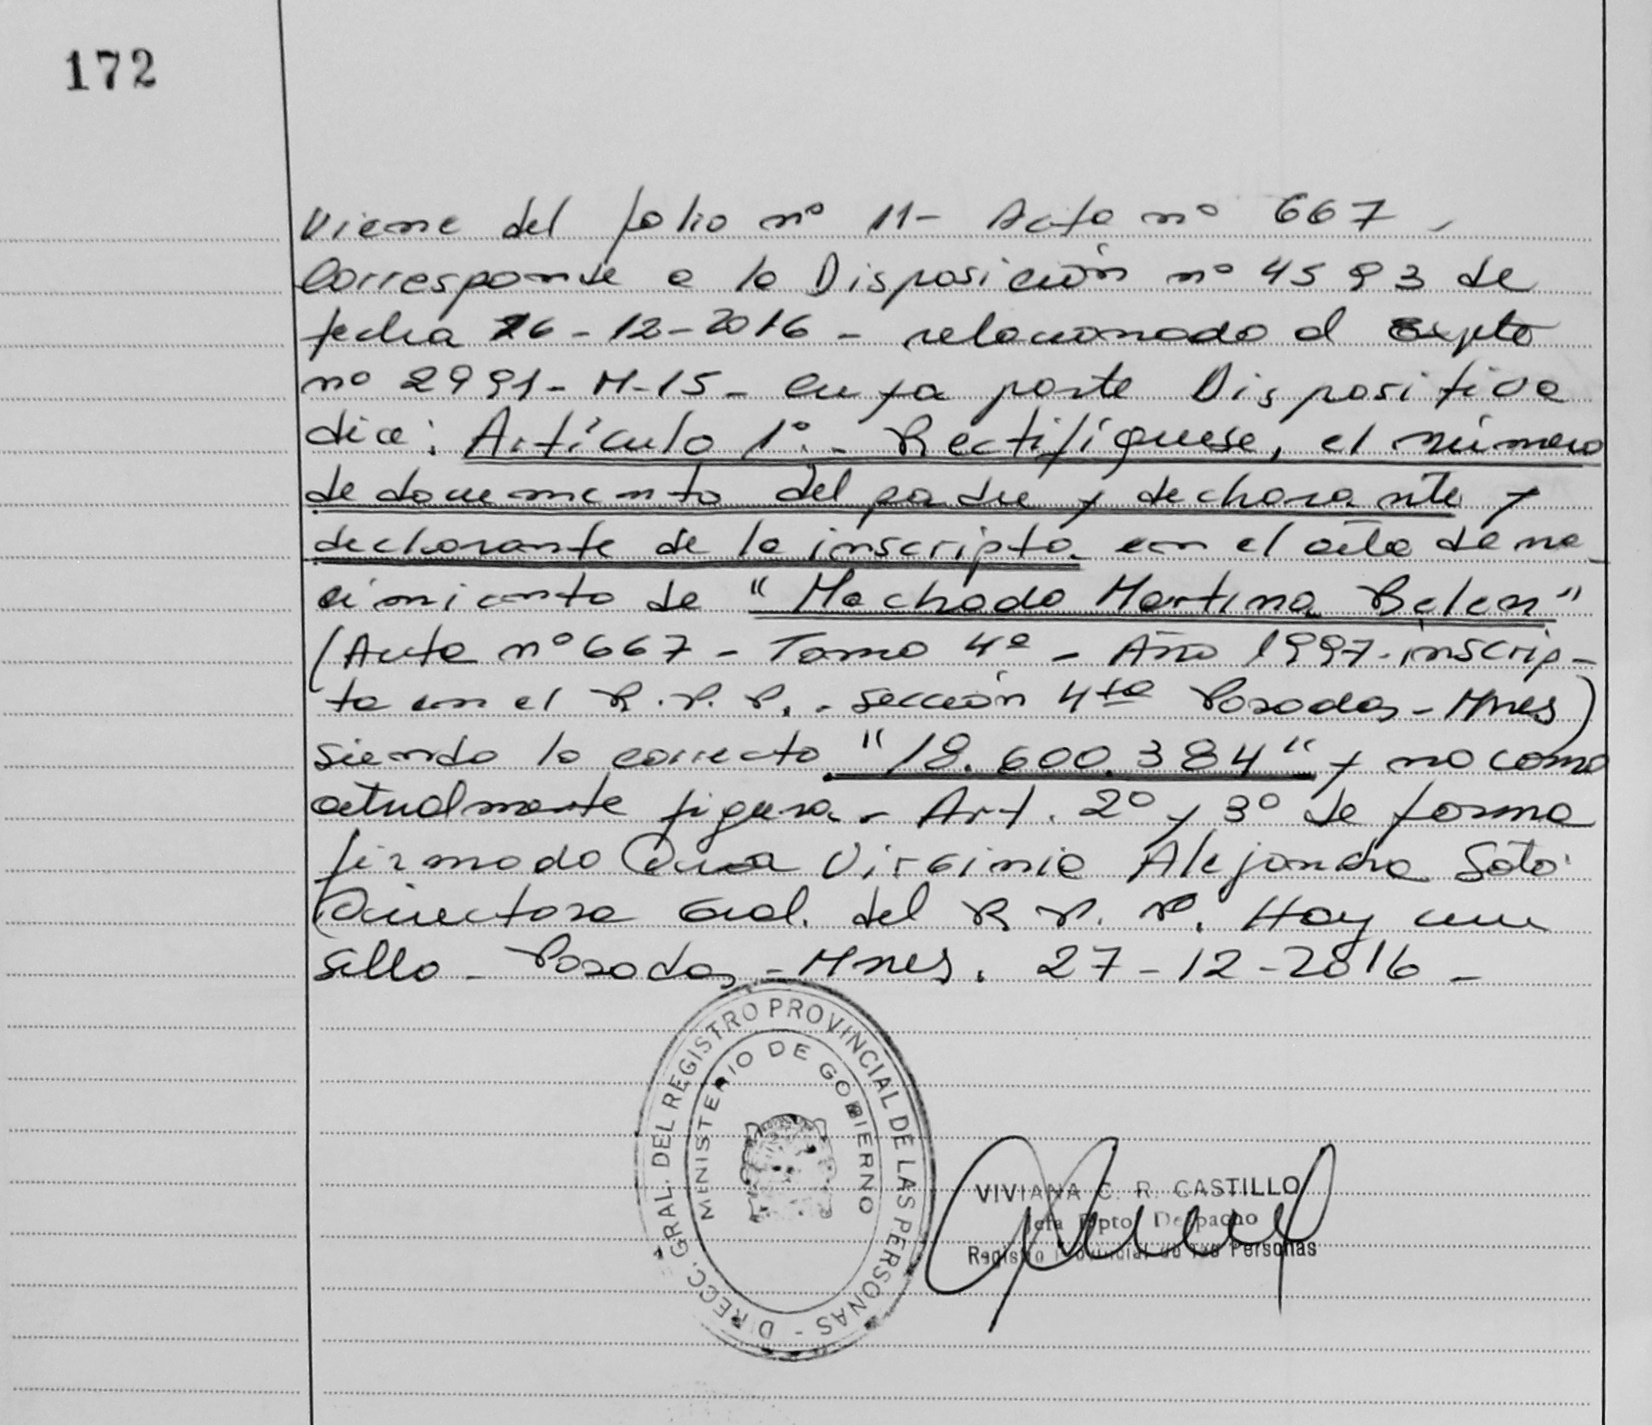 172
Viene del folio nº 11- Acta nº 667 -
Corresponde a la Disposición nº 4593 de
fecha 26-12-2016 - relacionado al Expte
nº 2991-M-15- cuya parte Dispositiva
dice: Artículo 1º.- Rectifíquese, el número
de documento del padre y declarante y
declarante de la inscripta en el acta de na-
cimiento de "Machado Martina Belen"
(Acta nº 667 - Tomo 4º - Año 1997-inscrip-
ta en el R.P.P. - Sección 4ta Posadas - Mnes)
siendo lo correcto "18.600.384" y no como
actualmente figura.- Art. 2º y 3º de forma
firmado Virginia Alejandra Soto
Directora Gral. del R.P.P. Hay un
sello - Posadas - Mnes. 27-12-2016 -
DIRECC. GRAL. DEL REGISTRO PROVINCIAL DE LAS PERSONAS -
MINISTERIO DE GOBIERNO
VIVIANA C. R. CASTILLO
Jefa Dpto. Despacho
Registro Provincial de las Personas